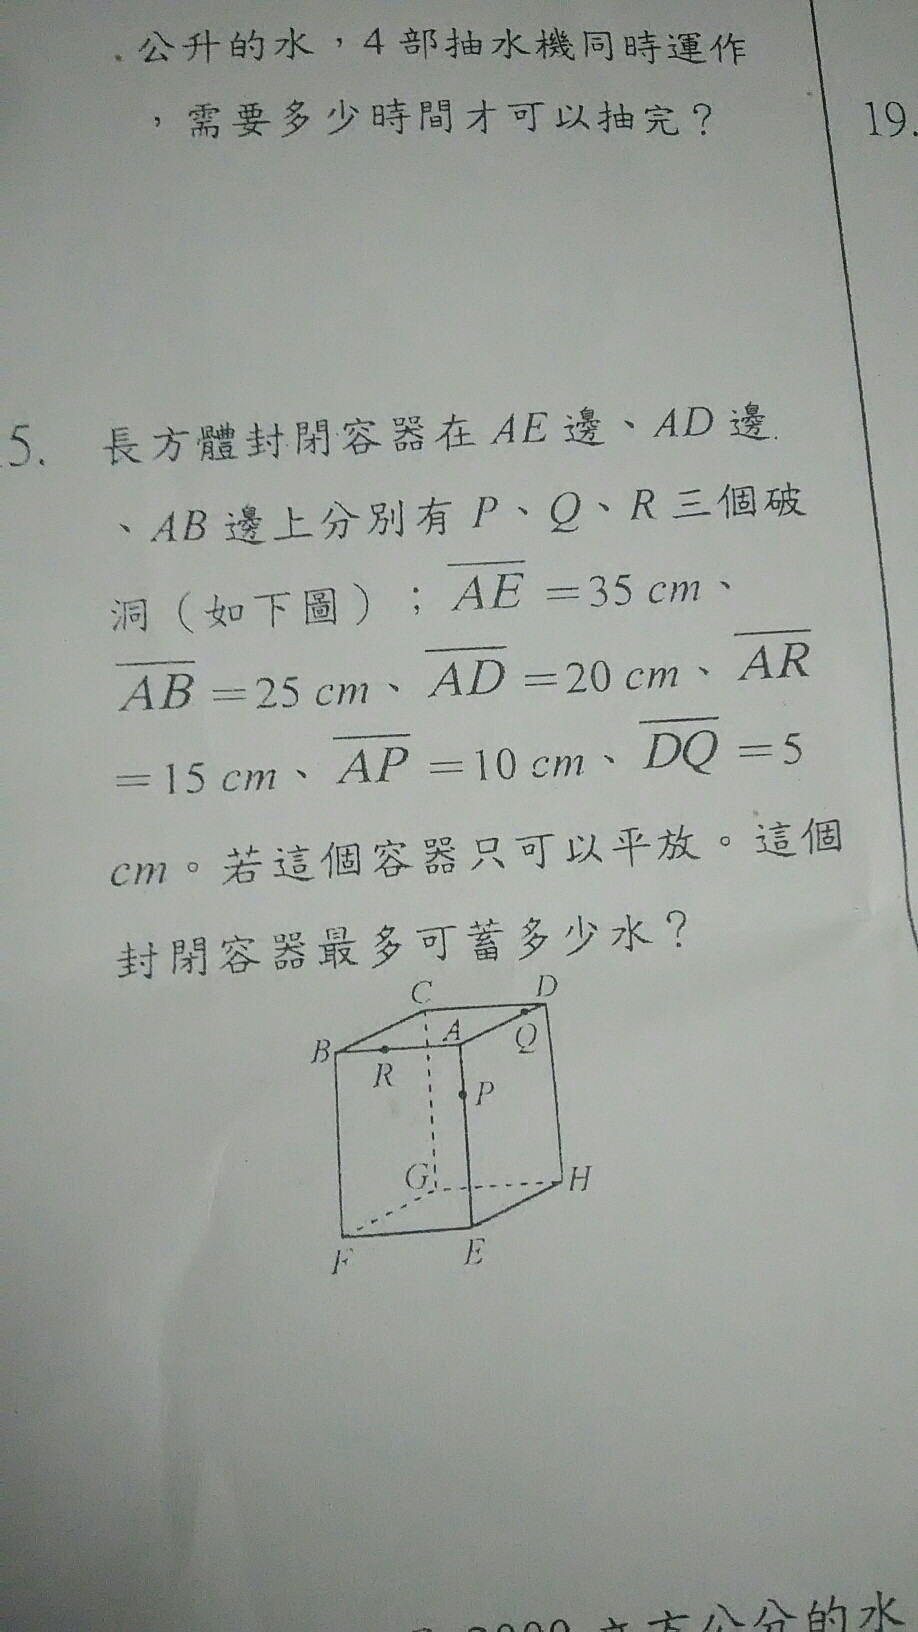 公升的水，4部抽水機同時運作
，需要多少時間才可以抽完？
19.
5. 長方體封閉容器在 AE 邊、AD 邊
、AB 邊上分別有 P、Q、R 三個破
洞（如下圖）；AE =35 cm、
AB =25 cm、AD =20 cm、AR
=15 cm、AP =10 cm、DQ =5
cm。若這個容器只可以平放。這個
封閉容器最多可蓄多少水？
C D
B A Q
R P
G H
F E
立方公分的水